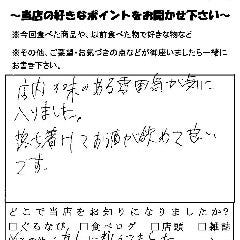 ～当店の好きなポイントをお聞かせ下さい～
※今回食べた商品や、以前食べた物で好きな物など
※その他、ご要望・お気づきの点などが御座いましたら一緒に
お書き下さい。
店内 味のある雰囲気が気に
入りました。
落ち着けてお酒が飲めて良い
です。
どこで当店をお知りになりましたか?
□ぐるなび, □食べログ □店頭 □雑誌